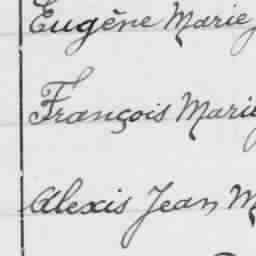 Eugène Marie
François Marie
Alexis Jean M